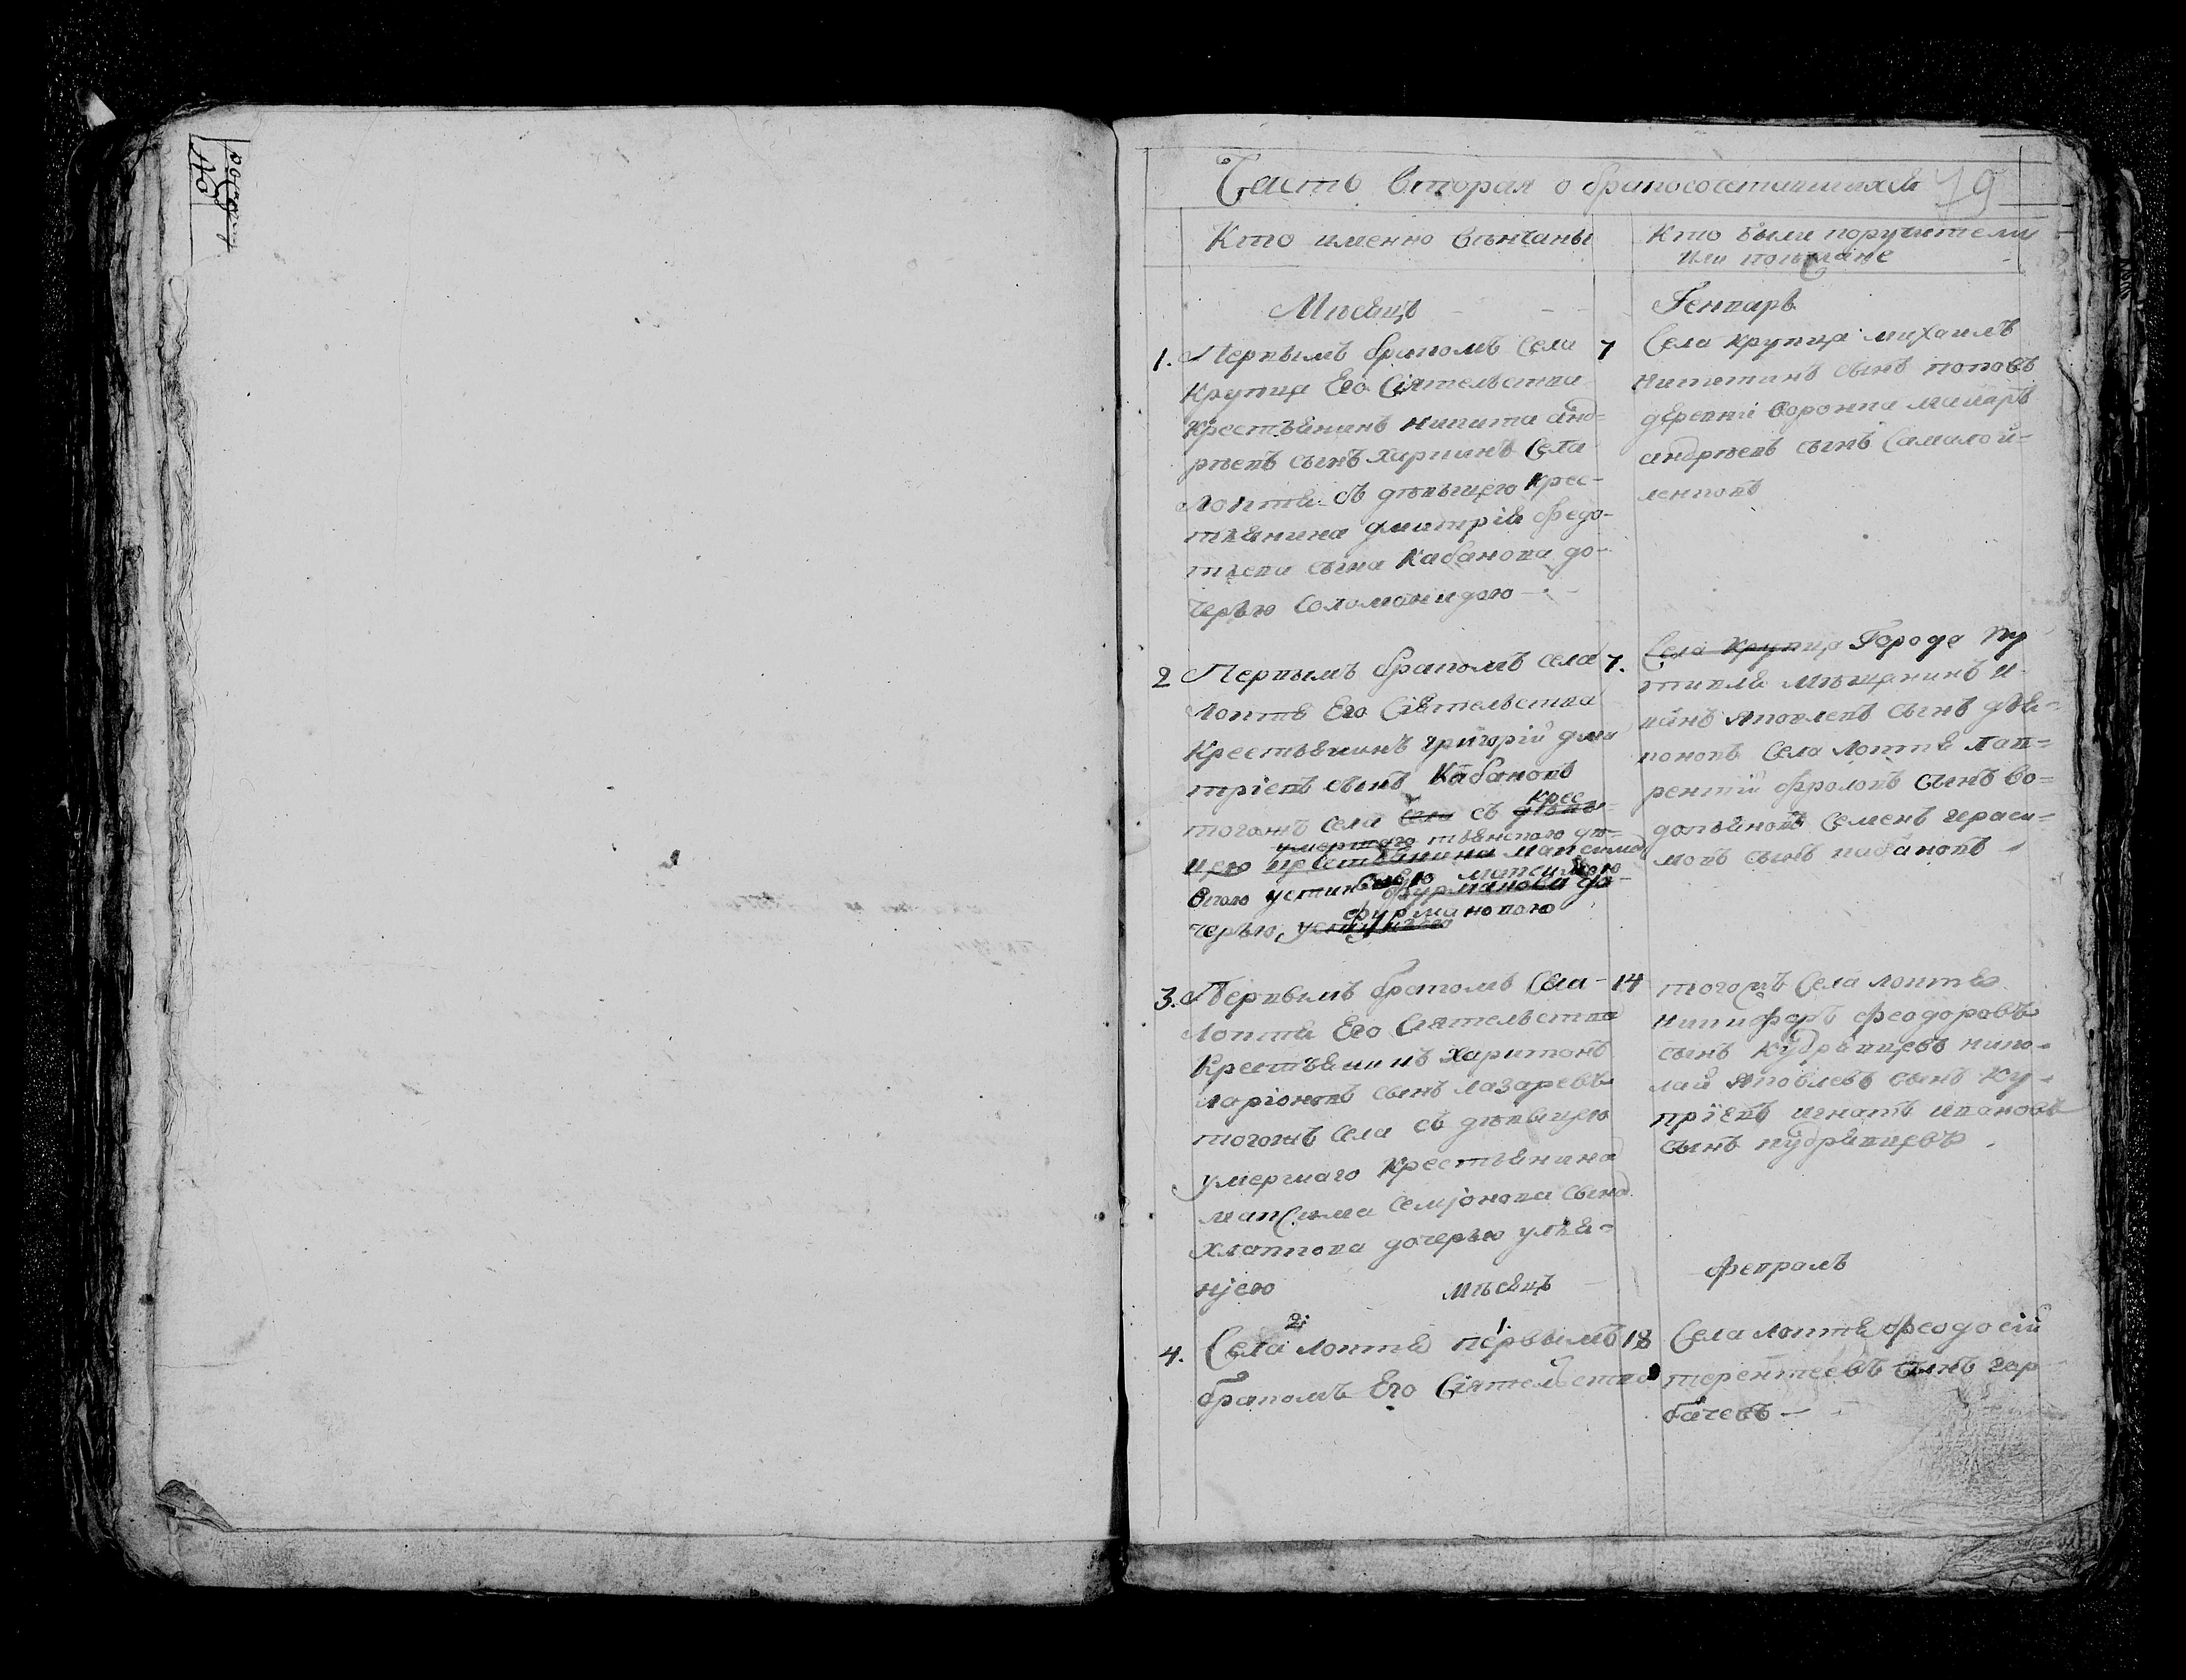 Часть вторая о бракосочетавшихся 79
Кто именно венчаны
Кто были поручители
или поезжане
Мѣсяцъ
Генварь
1. Первымъ бракомъ Села 7
Крупца Его Сіятельства
Крестьянинъ никита анд=
реевъ сынъ харинъ Села
Локтя съ дѣвицею Крес-
тьянина дмитрія федо-
тьева сына Кабанова до-
черью соломонидою
Села крупца михаилъ
никитинъ сынъ поповъ
деревни воронка
андреевъ сынъ Самалой=
ленковъ
2 Первымъ бракомъ села 7.
Локтя Его Сіятельства
Крестьянинъ григорій дми
тріевъ сынъ Кабановъ
крес
тогожъ села Села съ дѣви-
умершаго тьянскою дѣ=
цею крестьянина максима
максимою
вною фурманова до-
фурмановою
черью устиньею
Села Крупца Города пу
тивля мѣщанинъ и-
ванъ яковлевъ сынъ дья-
коновъ Села локтя лав=
рентій фроловъ сынъ во=
допьяновъ Семенъ гераси-
мовъ сынъ кабановъ
3. Первымъ бракомъ Села - 14
Локтя Его Сіятельства
Крестьянинъ харитонъ
ларіоновъ сынъ лазаревъ
тогожъ села съ дѣвицею
умершаго крестьянина
максима семіонова сына
хлапкова дочерью улья-
ніею
тогожъ Села локтя
никифоръ феодоровъ
сынъ Кудрявцевъ нико-
лай яковлевъ сынъ ку-
пріевъ игнатъ ивановъ
сынъ кудрявцевъ.
мѣсяцъ
февраль
2: 1.
4. Села локтя первымъ 18
бракомъ Его Сіятельства
Села локтя феодосій
терентеевъ сынъ гор
бачевъ